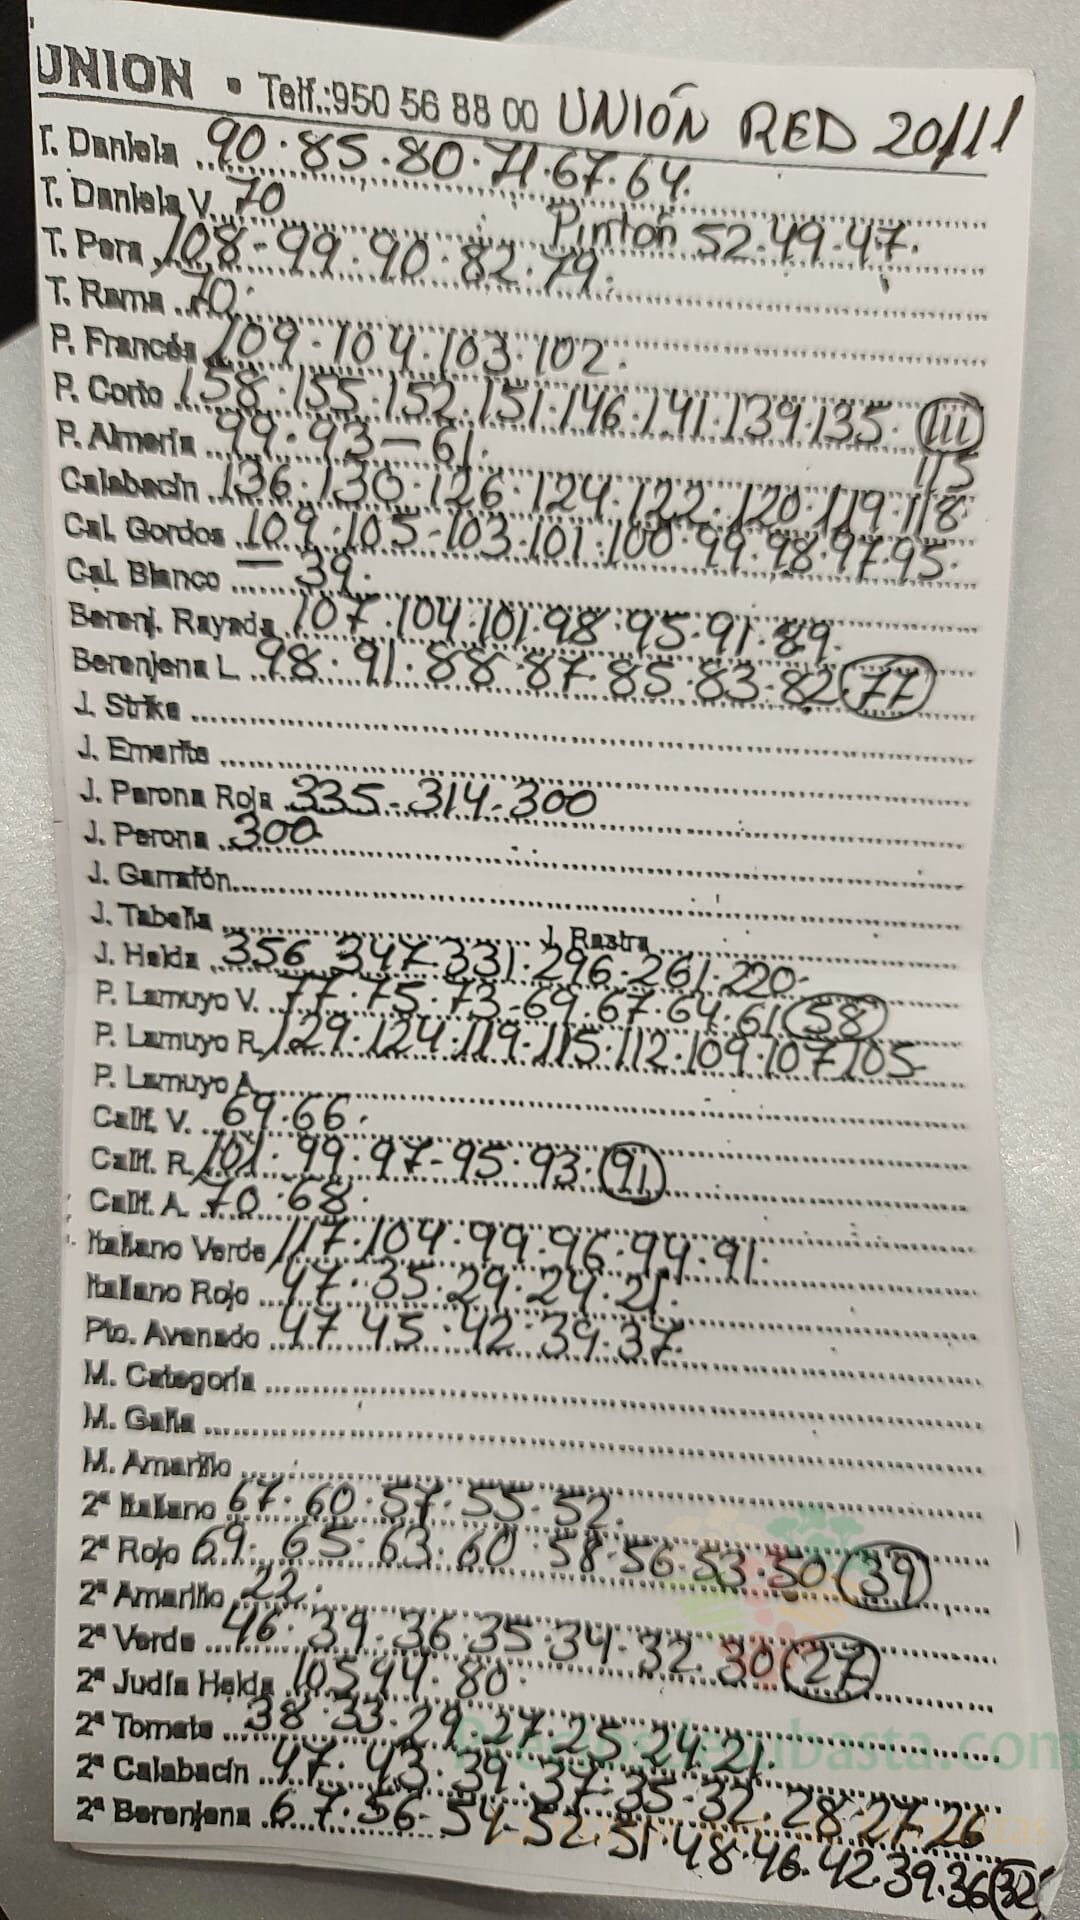 UNION • Telf.:950 56 88 00 UNIÓN RED 20/11
T. Daniela 90.85.80.71.67.64.
T. Daniela V. 70 Pintón 52.49.47.
T. Pera 108-99.90.82.79.
T. Rama 70.
P. Francés 109.104.103.102.
P. Corto 158.155.152.151.146.141.139.135. 111
P. Almería 99.93-61. 115
Calabacín 136.130.126.124.122.120.119.118
Cal. Gordos 109.105-103.101.100.99.98.97.95.
Cal. Blanco - 39.
Berenj. Rayada 107.104.101.98.95.91.89.
Berenjena L. 98.91.88.87.85.83.82. 77
J. Strike
J. Emerite
J. Perona Roja 335-314-300
J. Perona 300
J. Garrafón
J. Tabella J. Rastra
J. Helda 356 347.331.296.261.220.
P. Lamuyo V. 77.75.73-69.67.64.61 58
P. Lamuyo R. 129.124.119.115.112.109.107 105-
P. Lamuyo A.
Calif. V. 69.66.
Calif. R. 101.99.97-95.93. 91
Calif. A. 70.68.
Italiano Verde 117.104.99.96.94.91.
Italiano Rojo 47.35.29.24.21.
Pto. Avenado 47 45.42.39.37.
M. Categoría
M. Galia
M. Amarillo
2ª Italiano 67.60.57.55.52.
2ª Rojo 69.65.63.60.58.56.53.50 39
2ª Amarillo 22.
2ª Verde 46.39.36.35.34.32.30 27
2ª Judía Helda 105 94.80.
2ª Tomate 38.33.29.27.25.24.21.
2ª Calabacín 47.43.39.37.35-32.28.27.26
2ª Berenjena 67.56-54-52.51.48.46.42.39.36 32
Preciosdesubasta.com